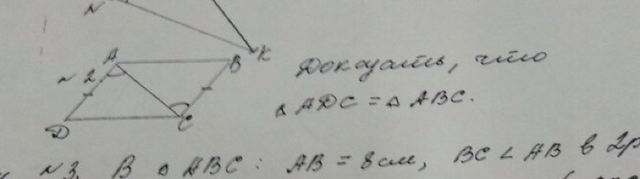 N
K
№2 A B Доказать, что
△ADC = △ABC.
D C
№3. В △ABC: AB = 8см, BC < AB в 2р